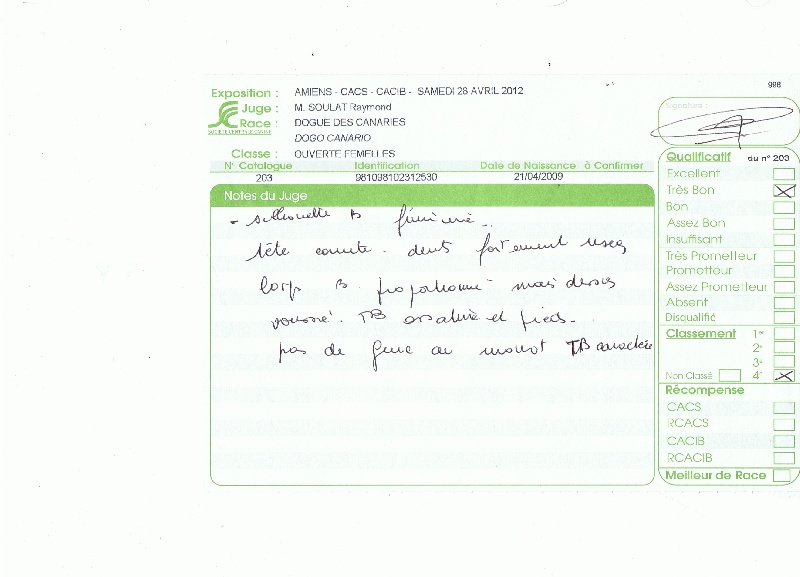 998
Exposition : AMIENS - CACS - CACIB - SAMEDI 28 AVRIL 2012
Juge : M. SOULAT Raymond
Race : DOGUE DES CANARIES
SOCIÉTÉ CENTRALE CANINE
DOGO CANARIO
Classe : OUVERTE FEMELLES
N° Catalogue Identification Date de Naissance à Confirmer
203 981098102312530 21/04/2009
Notes du Juge
- silhouette B
tête courte. dents fortement usées
Corps B. proportionné mais dessus
voussé. TB ossature et pieds.
pas de TB caractère
Signature :
Qualificatif du n° 203
Excellent
Très Bon
Bon
Assez Bon
Insuffisant
Très Prometteur
Prometteur
Assez Prometteur
Absent
Disqualifié
Classement 1er
2e
3e
Non Classé 4e
Récompense
CACS
RCACS
CACIB
RCACIB
Meilleur de Race